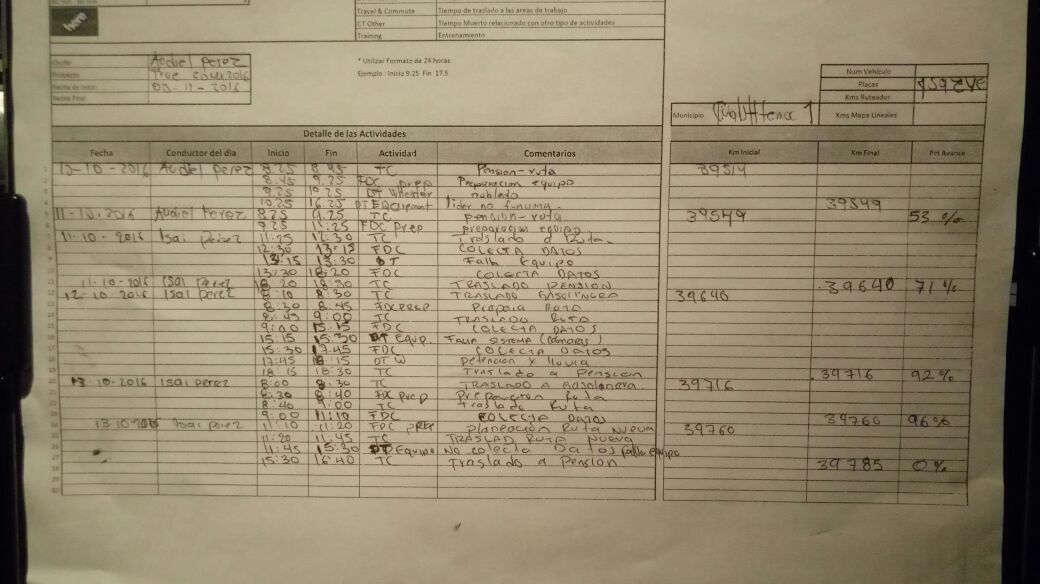 here
Travel & Commute Tiempo de traslado a las areas de trabajo
ET Other Tiempo Muerto relacionado con otro tipo de actividades
Training Entrenamiento
Audiel Perez
True
Fecha de Inicio -11-2016
Fecha Final
* Utilizar Formato de 24 horas
Ejemplo : Inicio 9.25 Fin 17.5
Num Vehiculo
Placas
Kms Ruteador
Municipio Kms Mapa Lineales
Detalle de las Actividades
Fecha Conductor del dia Inicio Fin Actividad Comentarios Km Inicial Km Final Pct Avance
-10-2016 Audiel Perez 8.25 8.45 TC Pension-ruta 39514
8.45 9.25 FDC prep Preparacion equipo
9.25 10.25 DT nublado
10.25 16.25 lider no funciona. 39549
11-10-2016 Audiel Perez 8.25 9.25 TC pension-ruta 39549 53 %
9.25 11:25 FDC prep preparacion equipo
11-10-2016 Isai Pérez 11:25 12:30 TC Traslado a Ruta.
12:30 13:15 FDC COLECTA DATOS
13:15 13:30 DT Falla Equipo
13:30 18:20 FDC COLECTA DATOS
11-10-2016 Isai Perez 18:20 18:30 TC TRASLADO PENSION 39640 71 %
12-10-2016 Isai perez 8:10 8:30 TC TRASLADO 39640
8:30 8:45 FDC PREP Prepara Ruta
8:45 9:00 TC TRASLADO RUTA
9:00 15:15 FDC COLECTA DATOS
15:15 15:30 DT equp. Falla SISTEMA (camaras)
15:30 17:45 FDC COLECTA DATOS
17:45 18:15 DT W Detencion x lluvia
18:15 18:30 TC Traslado a Pension 39716 92 %
13-10-2016 Isai perez 8:00 8:30 TC TRASLADO A 39716
8:30 8:40 FDC prep Preparacion Ruta
8:40 9:00 TC Traslado Ruta
9:00 11:10 FDC COLECTA DATOS 39760 96 %
13-10-2016 Isai perez 11:10 11:20 FDC Planeación Ruta Nueva 39760
11:20 11:45 TC TRASLAD RUTA NUEVA
11:45 15:30 DT Equipo No colecta Datos falla equipo
15:30 16:40 TC Traslado a Pension 39785 0 %